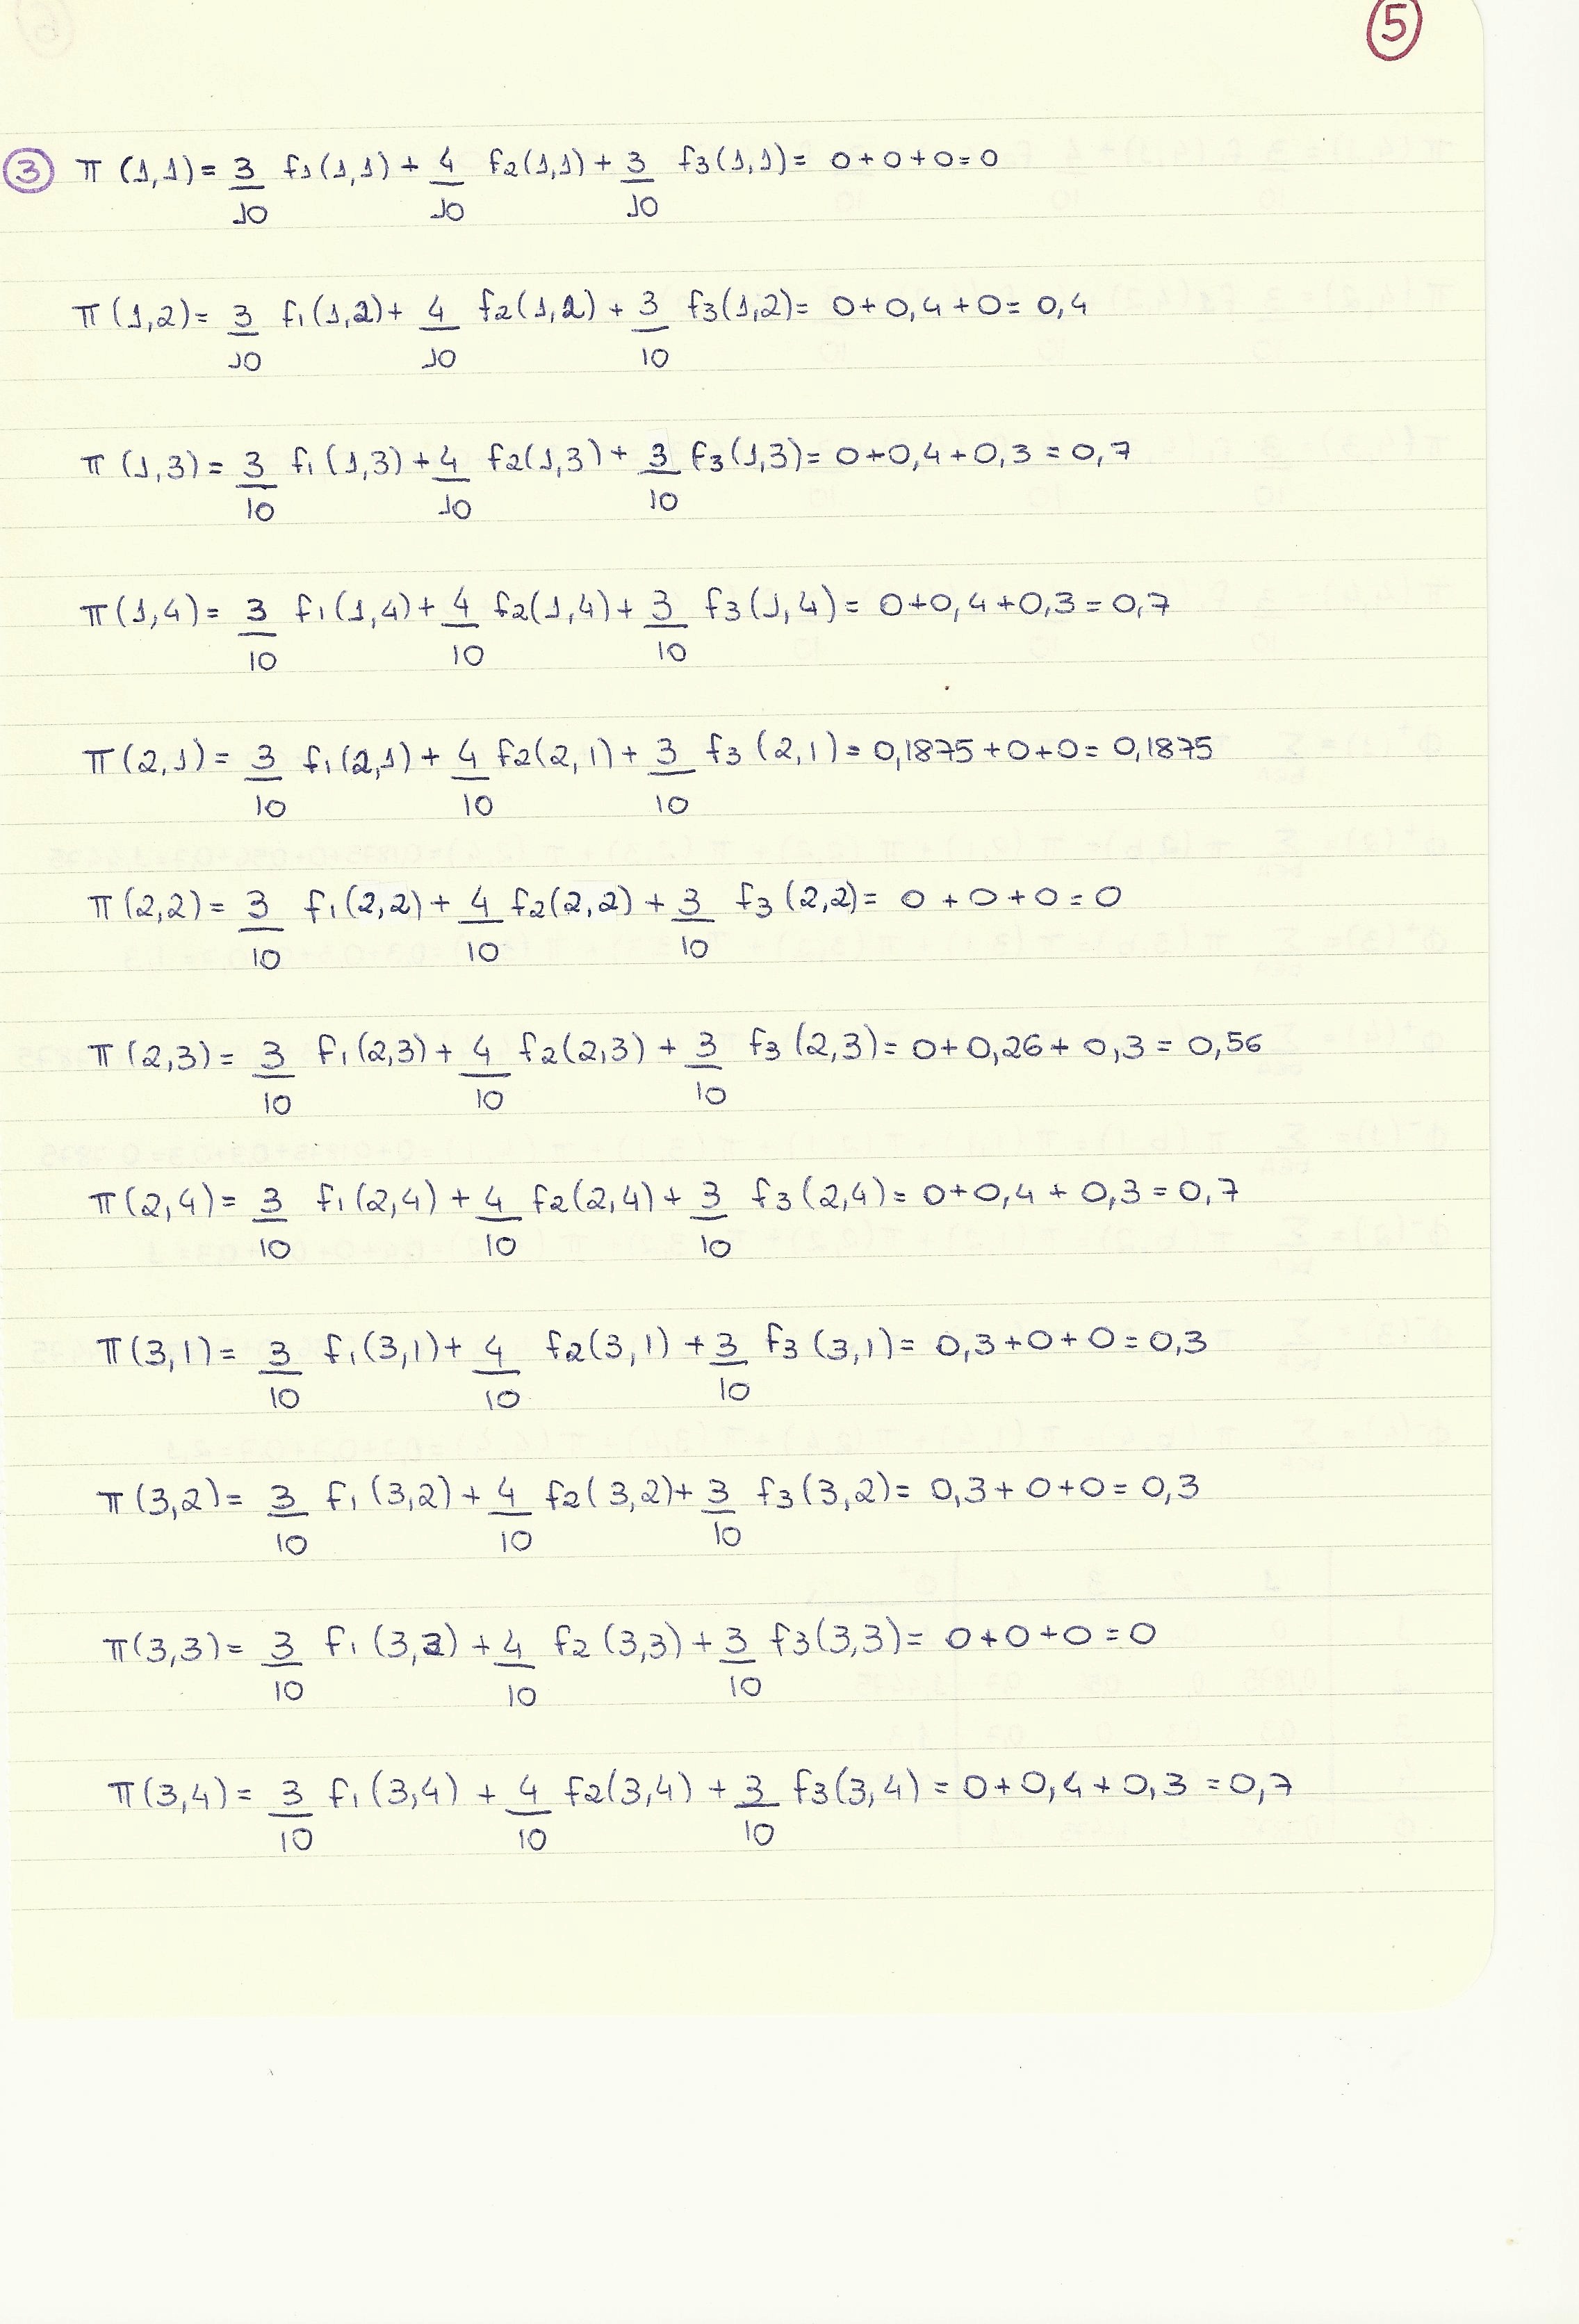 5
3 π (1,1) = 3/10 f1(1,1) + 4/10 f2(1,1) + 3/10 f3(1,1) = 0+0+0=0
π (1,2) = 3/10 f1(1,2) + 4/10 f2(1,2) + 3/10 f3(1,2) = 0+0,4+0= 0,4
π (1,3) = 3/10 f1(1,3) + 4/10 f2(1,3) + 3/10 f3(1,3) = 0+0,4+0,3 = 0,7
π (1,4) = 3/10 f1(1,4) + 4/10 f2(1,4) + 3/10 f3(1,4) = 0+0,4+0,3 = 0,7
π (2,1) = 3/10 f1(2,1) + 4/10 f2(2,1) + 3/10 f3(2,1) = 0,1875+0+0= 0,1875
π (2,2) = 3/10 f1(2,2) + 4/10 f2(2,2) + 3/10 f3(2,2) = 0+0+0=0
π (2,3) = 3/10 f1(2,3) + 4/10 f2(2,3) + 3/10 f3(2,3) = 0+0,26+0,3 = 0,56
π (2,4) = 3/10 f1(2,4) + 4/10 f2(2,4) + 3/10 f3(2,4) = 0+0,4+0,3 = 0,7
π (3,1) = 3/10 f1(3,1) + 4/10 f2(3,1) + 3/10 f3(3,1) = 0,3+0+0=0,3
π (3,2) = 3/10 f1(3,2) + 4/10 f2(3,2) + 3/10 f3(3,2) = 0,3+0+0= 0,3
π (3,3) = 3/10 f1(3,3) + 4/10 f2(3,3) + 3/10 f3(3,3) = 0+0+0=0
π (3,4) = 3/10 f1(3,4) + 4/10 f2(3,4) + 3/10 f3(3,4) = 0+0,4+0,3 = 0,7